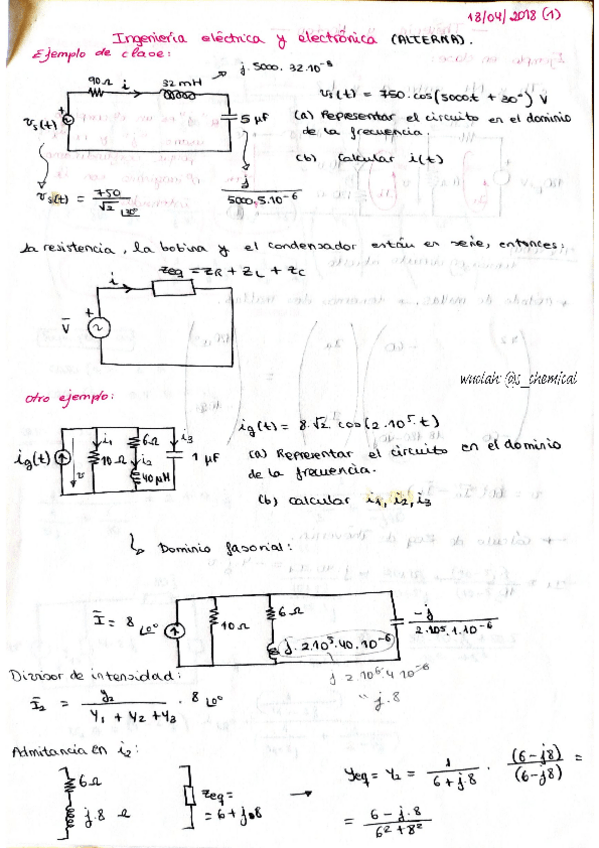 18/04/2018 (1)
Ingeniería eléctrica y electrónica (ALTERNA).
Ejemplo de clase:
90Ω i 32 mH j. 5000. 32.10⁻³
vs(t) + 5 μF
vs(t) = 750. cos(5000t + 30°) V
(a) Representar el circuito en el dominio
de la frecuencia.
(b) Calcular i(t)
vs(t) = 750/√2 ∟30°
j / 5000.5.10⁻⁶
La resistencia, la bobina y el condensador están en serie, entonces:
Zeq = ZR + ZL + ZC
i
+
V̄
wuolah: @s_chemical
Otro ejemplo:
ig(t) v i1 10 Ω 6Ω i2 40 μH i3 1 μF
ig(t) = 8.√2 cos(2.10⁵t)
(a) Representar el circuito en el dominio
de la frecuencia.
(b) Calcular i1, i2, i3
↳ Dominio fasorial:
Ī = 8 ∟0° 10Ω 6Ω j. 2.10⁵. 40. 10⁻⁶ -j / 2.10⁵.1.10⁻⁶
j 2.10⁶.4.10⁻⁶
" j.8
Divisor de intensidad:
Ī2 = y2 / Y1 + Y2 + Y3 . 8 ∟0°
Admitancia en i2:
6Ω
j.8 Ω
Zeq =
= 6 + j.8
→ Yeq = Y2 = 1 / 6 + j.8 . (6 - j8) / (6 - j8) =
= 6 - j.8 / 6² + 8²